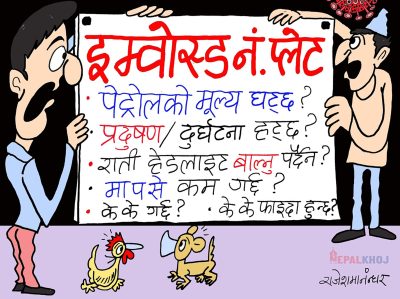 इम्वोस्ड नं. प्लेट
• पेट्रोलको मूल्य घट्छ?
• प्रदुषण/दुर्घटना हट्छ?
• राती हेडलाइट बाल्नु पर्दैन?
• मापसे कम गर्छ?
• के के गर्छ? • के के फाइदा हुन्छ?
NEPALKHOJ
राजेशमानन्धर